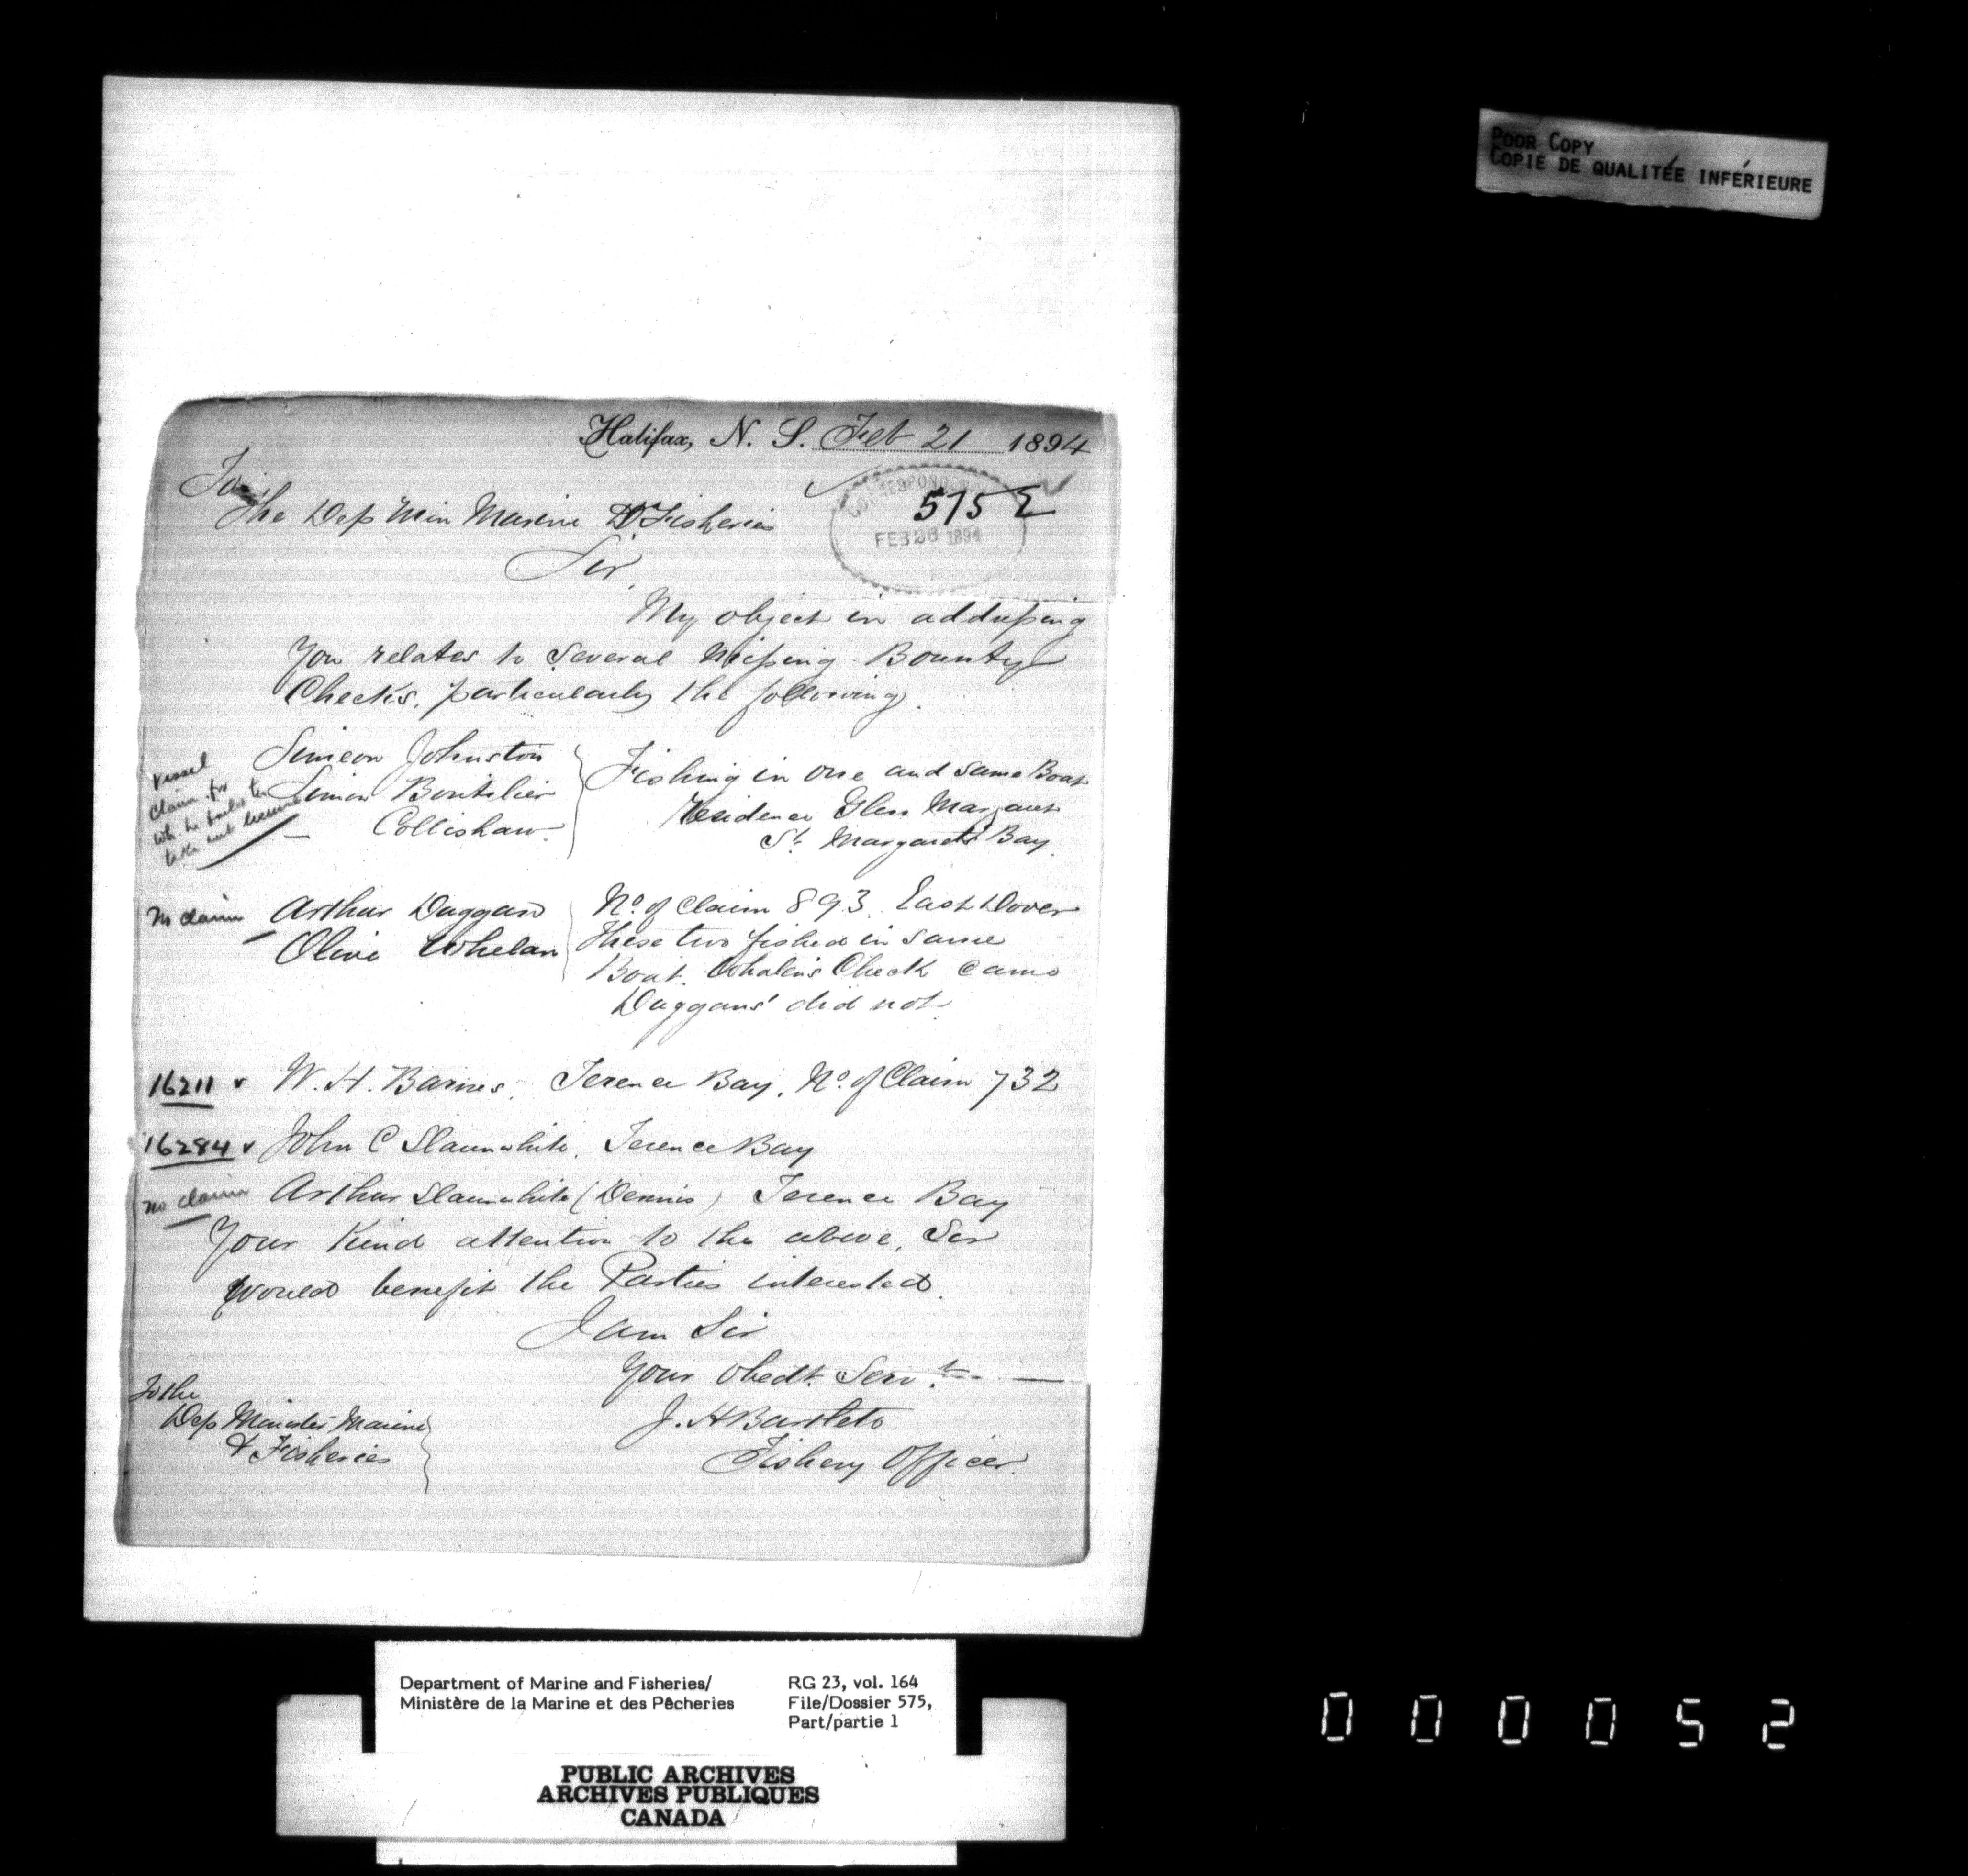 POOR COPY
COPIE DE QUALITÉE INFÉRIEURE
Halifax, N. S. Feb 21 1894
To
The Dep Min Marine & Fisheries
CORRESPONDENCE
5752
FEB 26 1894
Sir,
My object in addressing
You relates to several missing Bounty
Checks, particularly the following.
Vessel
claim for
wh. he failed to
take out license
Simeon Johnston
Simon Boutilier
— Collishaw
Fishing in one and same Boat
Residence Glen Margaret
St. Margarets Bay.
no claim
Arthur Duggan
Olive Whelan
No. of Claim 893. East Dover
These two fished in same
Boat. Whalen's Check came
Duggans' did not.
16211 v W. H. Barnes, Terence Bay, No. of Claim 732
16284 v John C Slaunwhite, Terence Bay
no claim Arthur Slaunwhite (Dennis) Terence Bay
Your Kind attention to the above, Sir
would benefit the Parties interested.
I am Sir
Your Obedt. Servt.
J. H Bartlett
Fishery Officer.
To the
Dep Minister Marine
& Fisheries
Department of Marine and Fisheries/
Ministère de la Marine et des Pêcheries
RG 23, vol. 164
File/Dossier 575,
Part/partie 1
PUBLIC ARCHIVES
ARCHIVES PUBLIQUES
CANADA
000052